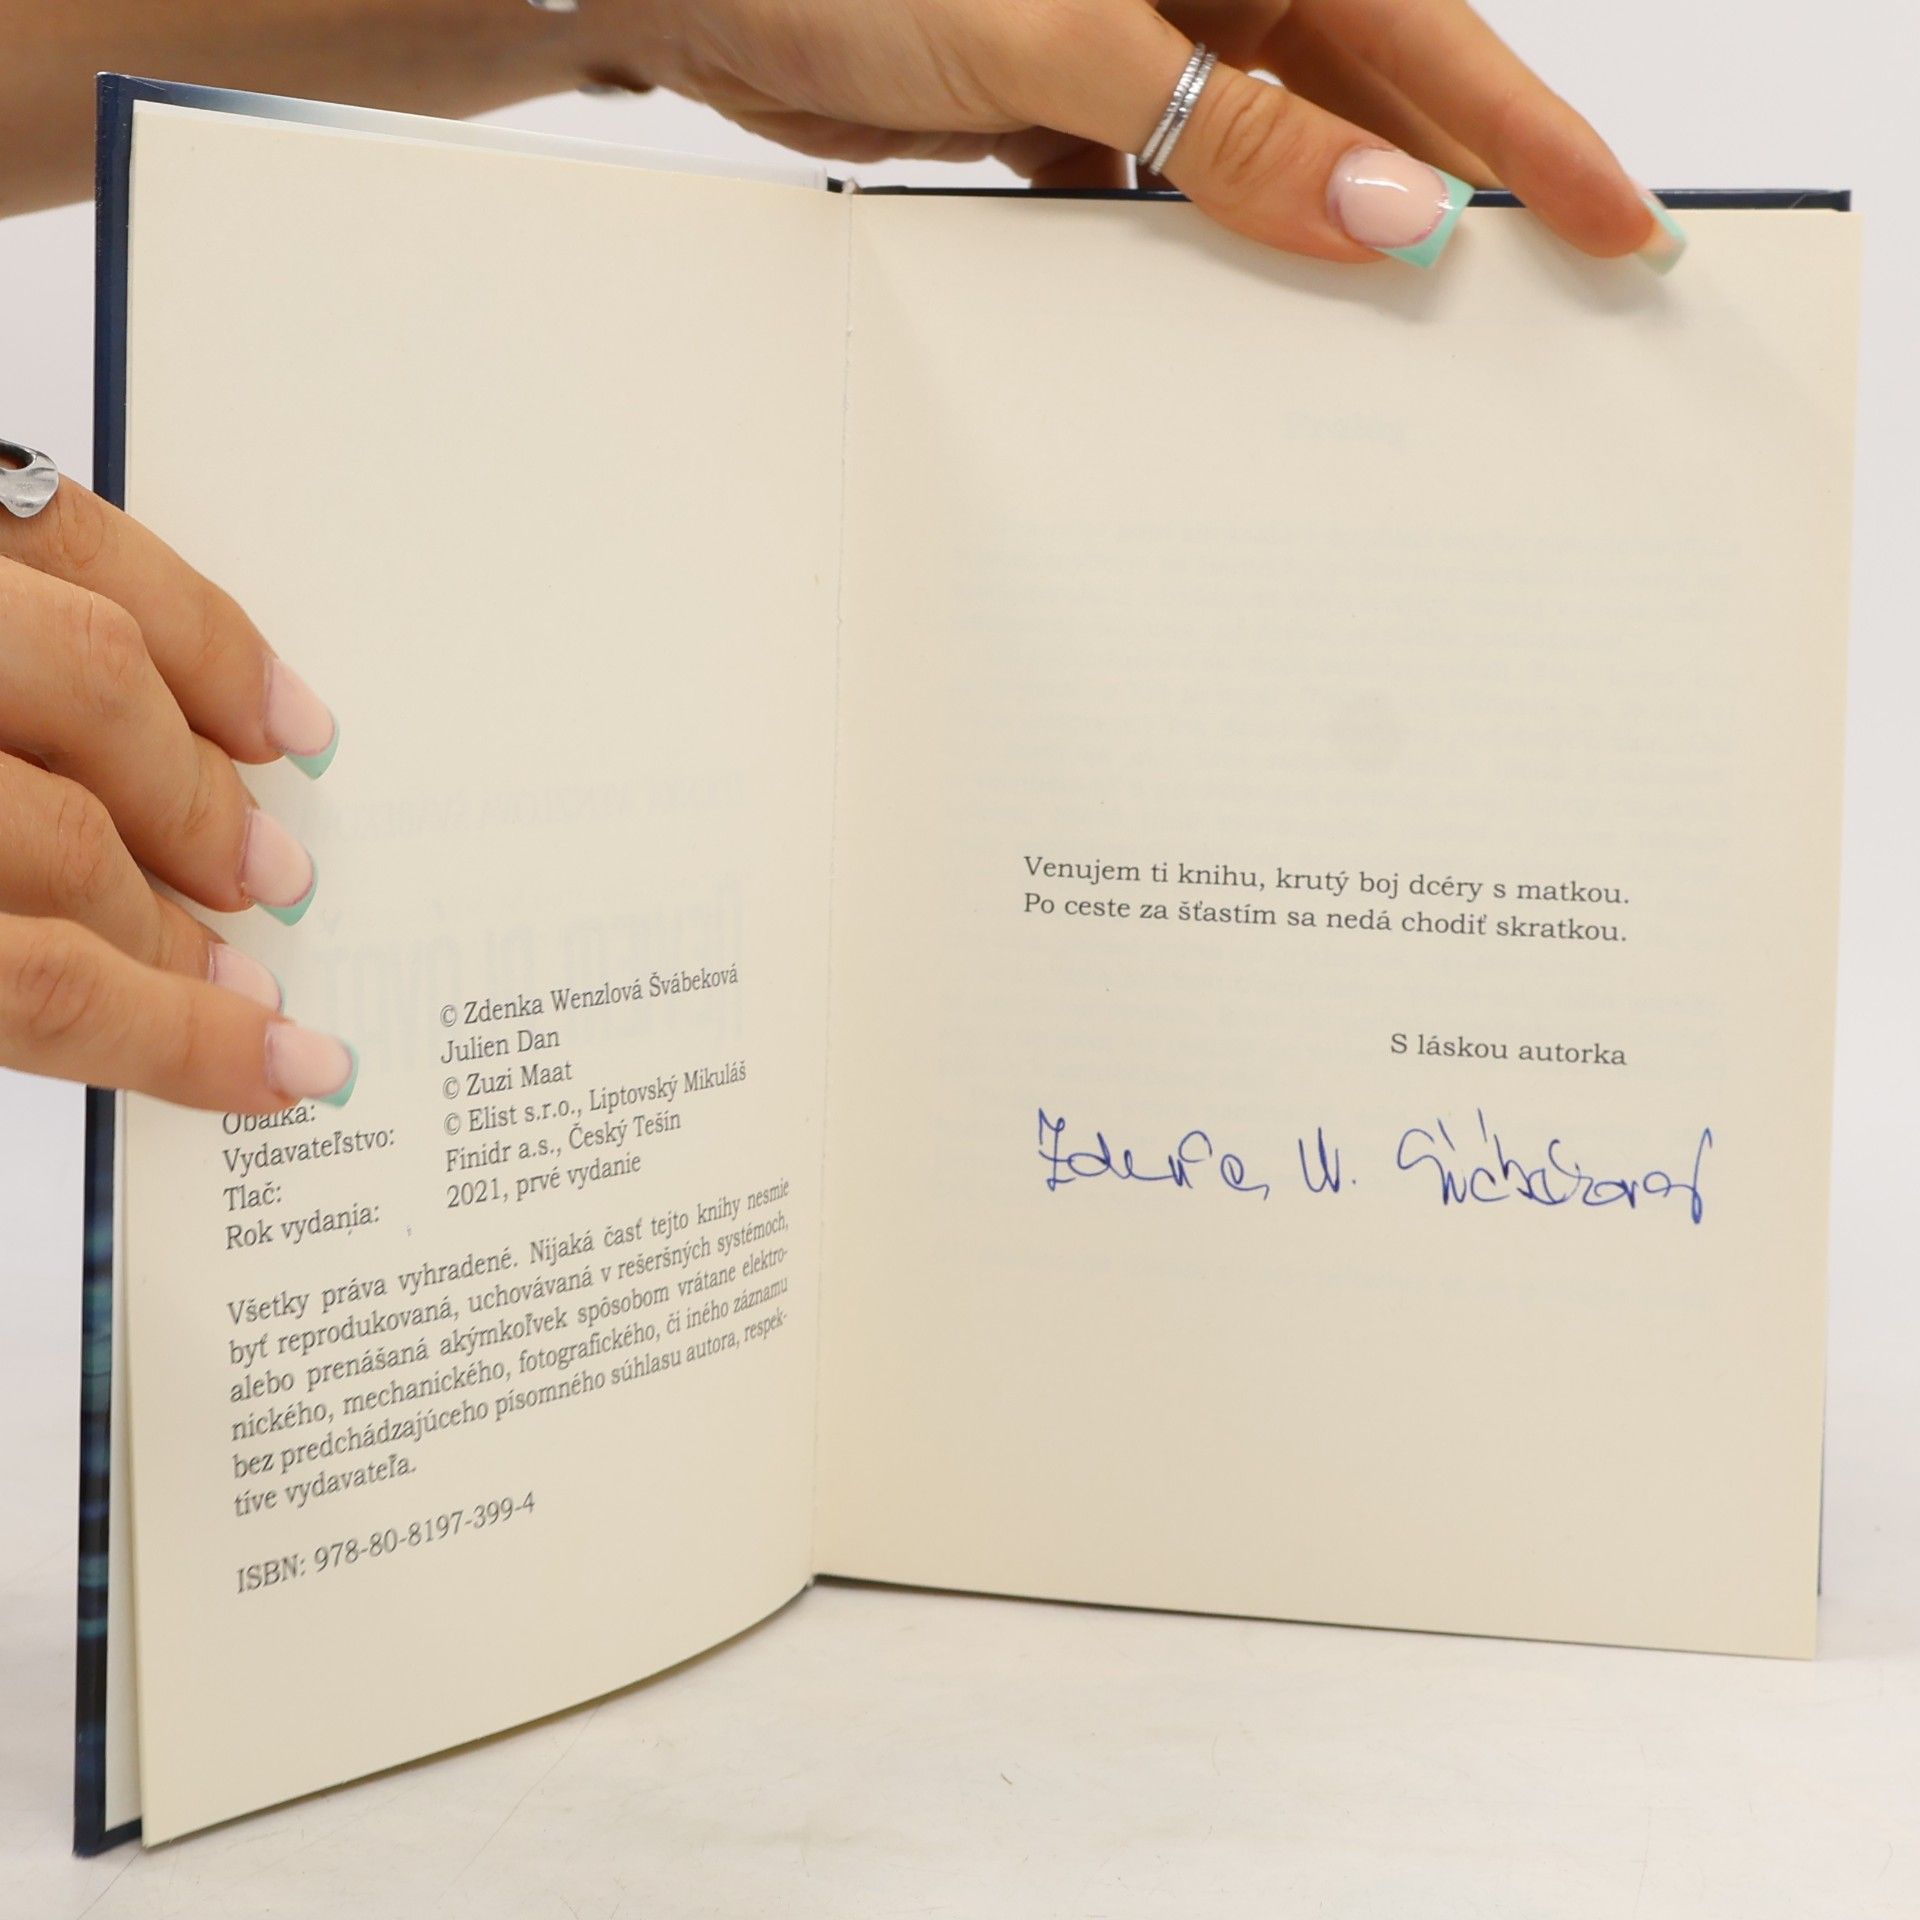 © Zdenka Wenzlová Švábeková
Julien Dan
Obálka: © Zuzi Maat
Vydavateľstvo: © Elist s.r.o., Liptovský Mikuláš
Tlač: Finidr a.s., Český Tešín
Rok vydania: 2021, prvé vydanie
Všetky práva vyhradené. Nijaká časť tejto knihy nesmie
byť reprodukovaná, uchovávaná v rešeršných systémoch,
alebo prenášaná akýmkoľvek spôsobom vrátane elektro-
nického, mechanického, fotografického, či iného záznamu
bez predchádzajúceho písomného súhlasu autora, respek-
tíve vydavateľa.
ISBN: 978-80-8197-399-4
Venujem ti knihu, krutý boj dcéry s matkou.
Po ceste za šťastím sa nedá chodiť skratkou.
S láskou autorka
Zdenka W. Švábeková